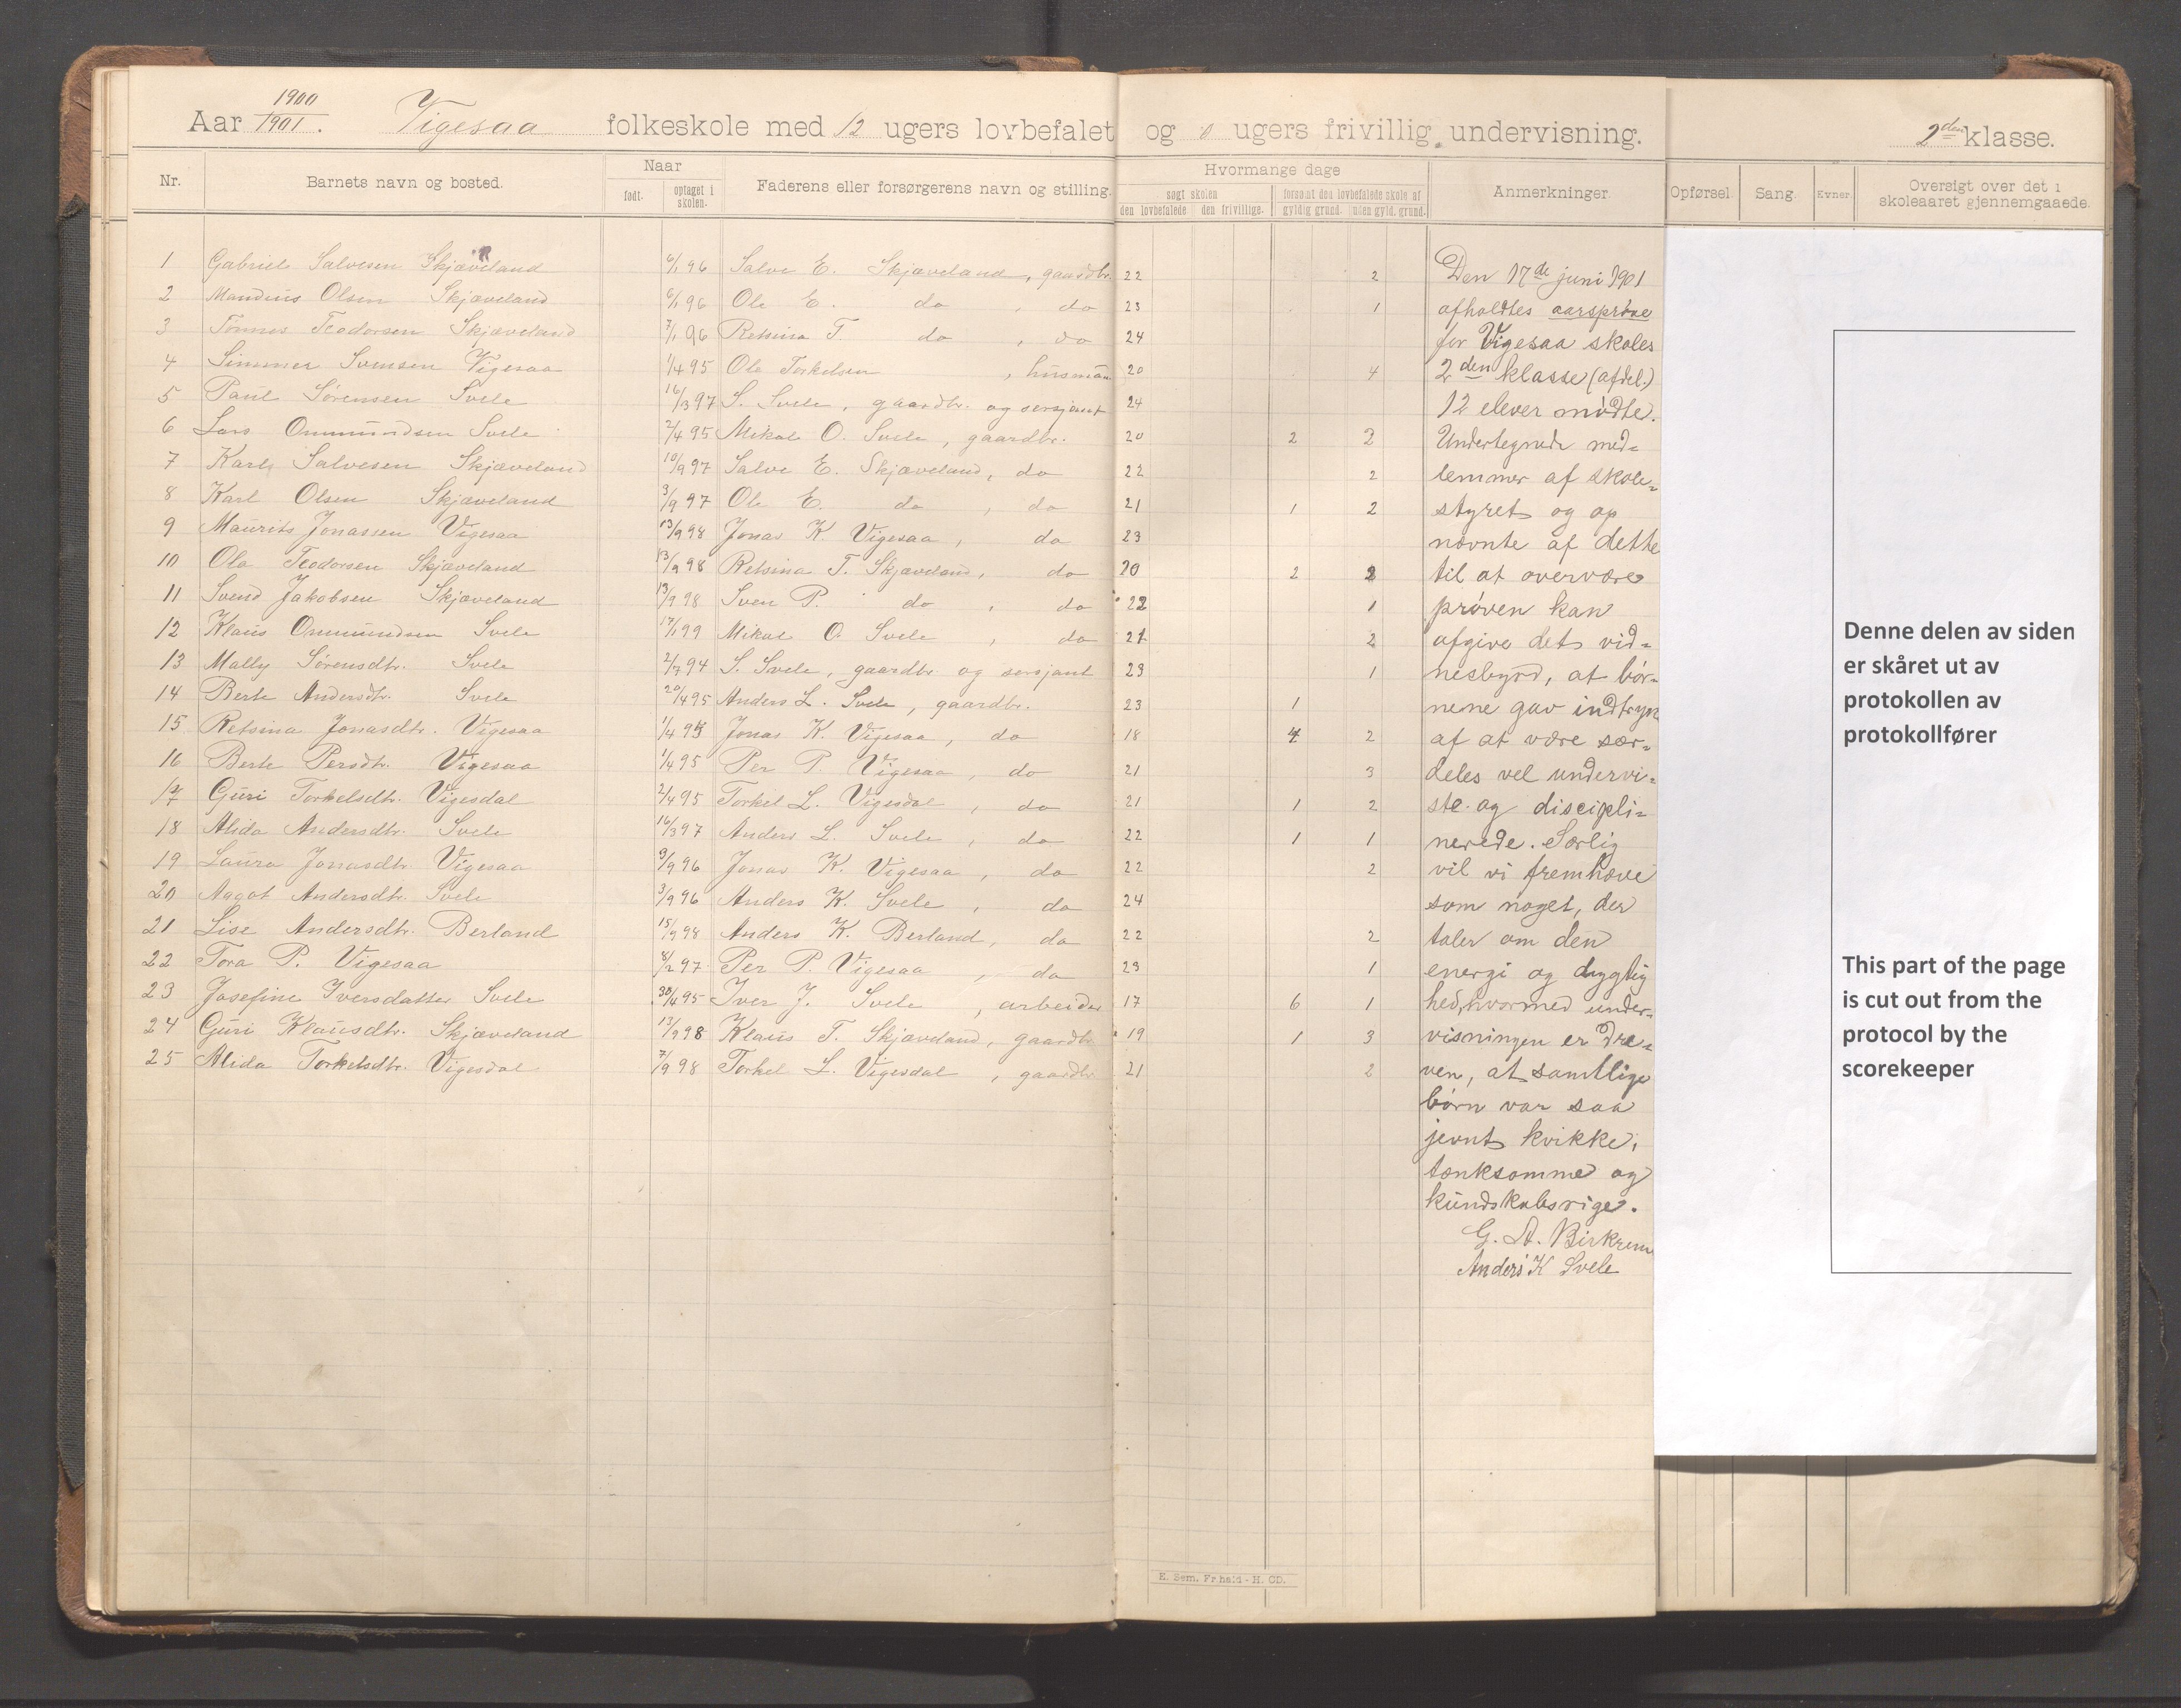 Aar 1900/1901. Vigesaa folkeskole med 12 ugers lovbefalet og 0 ugers frivillig undervisning. 2den klasse.
Nr. Barnets navn og bosted. Naar født. optaget i skolen. Faderens eller forsørgerens navn og stilling. Hvormange dage søgt skolen den lovbefalede den frivillige. forsømt den lovbefalede skole af gyldig grund. uden gyld. grund. Anmerkninger. Opførsel. Sang. Evner. Oversigt over det i skoleaaret gjennemgaaede.
1 Gabriel Salvesen Skjæveland 6/1 96 Salve E. Skjæveland, gaardbr. 22 2
2 Mandius Olsen Skjæveland 6/1 96 Ole E. do, do 23 1
3 Tønnes Teodorsen Skjæveland 7/1 96 Retsina T. do, do 24
4 Simmer Svensen Vigesaa 1/4 95 Ole Torkelsen, husman 20 4
5 Paul Sørensen Svele 16/3 97 S. Svele, gaardbr. og sersjant 24
6 Lars Ommundsen Svele 2/4 95 Mikal O. Svele, gaardbr. 20 2 2
7 Karl Salvesen Skjæveland 10/9 97 Salve E. Skjæveland, do 22 2
8 Karl Olsen Skjæveland 3/9 97 Ole E. do, do 21 1 2
9 Maurits Jonassen Vigesaa 13/9 98 Jonas K Vigesaa, do 23
10 Ole Teodorsen Skjæveland 13/9 98 Retsina T. Skjæveland, do 20 2 2
11 Svend Jakobsen Skjæveland 13/9 98 Sven P. do, do 22 1
12 Klaus Ommundsen Svele 17/1 99 Mikal O. Svele, do 21 2
13 Mally Sørensdtr. Svele 2/7 94 S. Svele, gaardbr og sersjant 23 1
14 Berte Andersdtr. Svele 20/4 95 Anders L. Svele, gaardbr. 23 1
15 Retsina Jonasdtr. Vigesaa 1/4 95 Jonas K. Vigesaa, do 18 4 2
16 Berte Persdtr. Vigesaa 1/4 95 Per P. Vigesaa, do 21 3
17 Guri Torkelsdtr. Vigesdal 2/4 95 Torkel L. Vigesdal, do 21 1 2
18 Alida Andersdtr. Svele 16/3 97 Anders L. Svele, do 22 1 1
19 Laura Jonasdtr. Vigesaa 9/9 96 Jonas K. Vigesaa, do 22 2
20 Aagot Andersdtr. Svele 3/9 96 Anders K. Svele, do 24
21 Lise Andersdtr. Berland 15/9 98 Anders K. Berland, do 22 2
22 Tora P. Vigesaa 8/2 97 Per P. Vigesaa, do 23 1
23 Josefine Iversdatter Svele 30/4 95 Iver J. Svele, arbeider 17 6 1
24 Guri Klausdtr. Skjæveland 13/9 98 Klaus T. Skjæveland, gaardbr 19 1 3
25 Alida Torkelsdtr. Vigesdal 7/9 98 Torkel L. Vigesdal, gaardbr 21 2
Den 17de juni 1901
afholdtes aarsprøve
for Vigesaa skoles
2den klasse (afdel.)
12 elever mødte.
Undertegnede med-
lemmer af skole-
styret og op
nævnte af dette
til at overvære
prøven kan
afgive det vid-
nesbyrd, at bør-
nene gav indtryk
af at være sær-
deles vel undervi-
ste og discipli-
nerede. Særlig
vil vi fremhæve
som noget, der
taler om den
energi og dygtig
hed, hvormed under-
visningen er dre-
ven, at samtlige
børn var saa
jevnt kvikke,
tænksomme og
kundskabsrige.
G. A. Birkrem
Anders K Svele
E. Sem. Fr.hald - H. CD.
Denne delen av siden
er skåret ut av
protokollen av
protokollfører
This part of the page
is cut out from the
protocol by the
scorekeeper